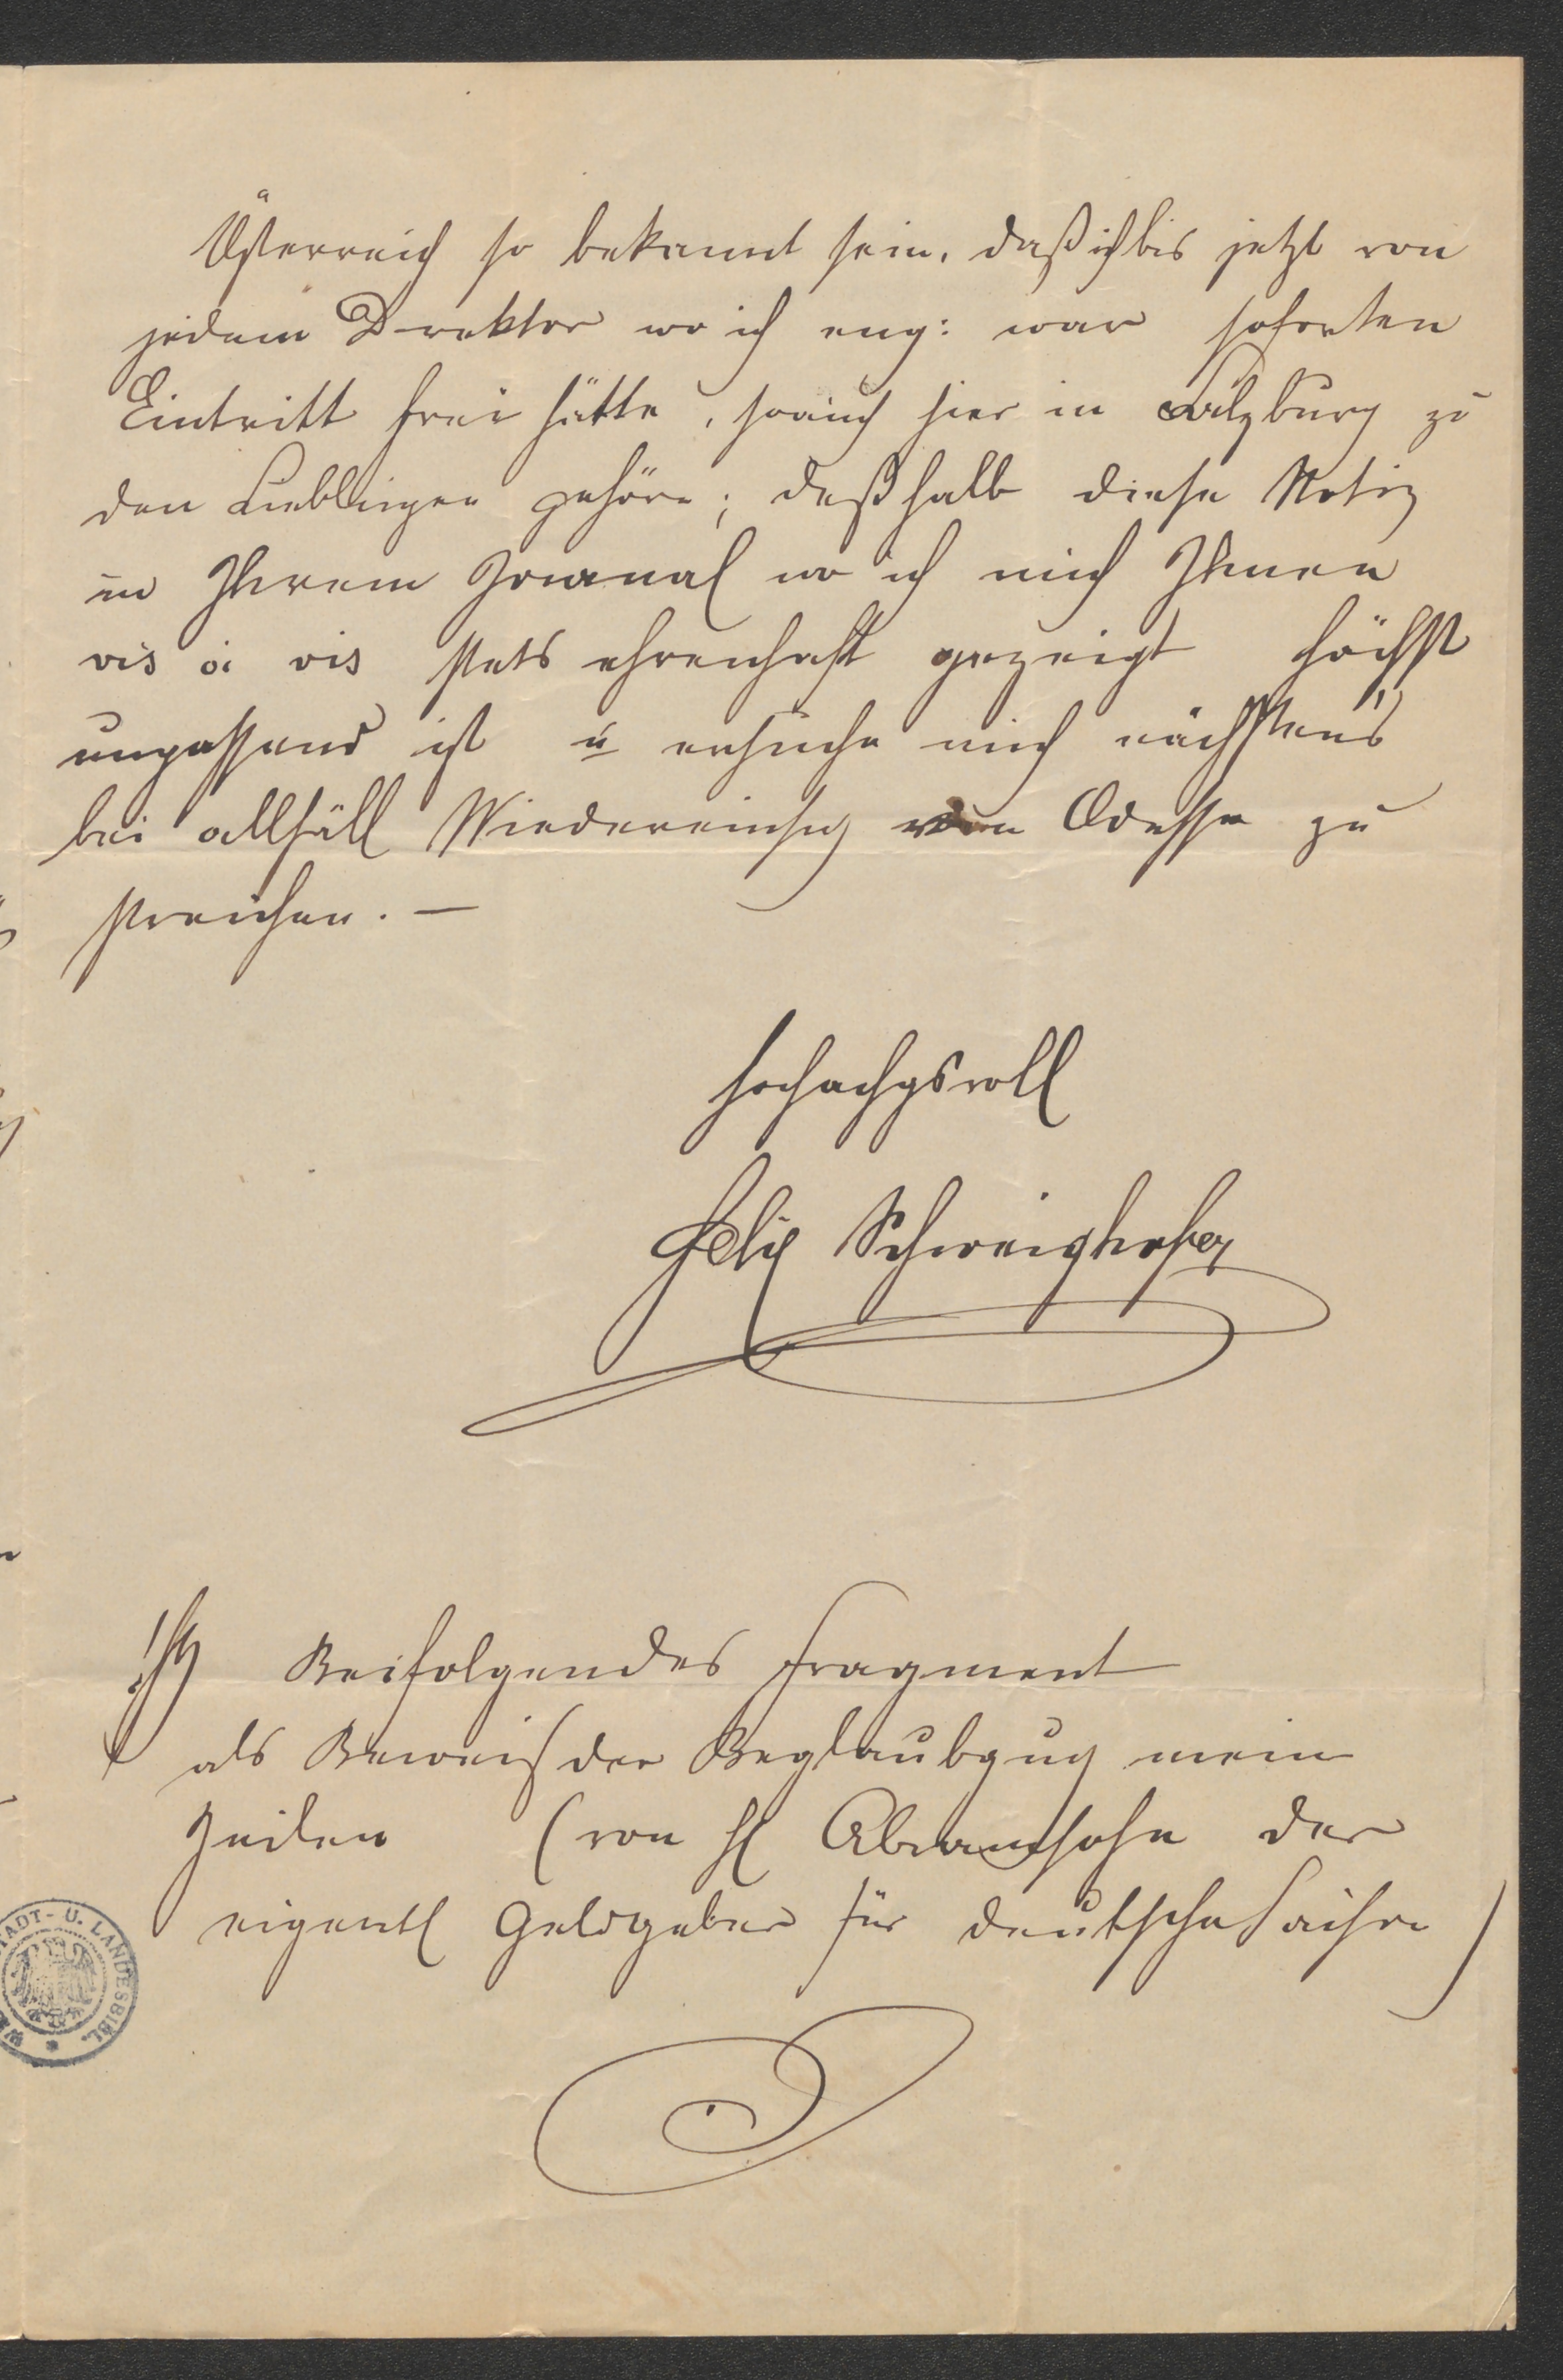 Österreich so bekannt sein, daß ich bis jetzt von
jedem Direktor wo ich eng: war soforten
Eintritt frei hätte, so auch hier in Salzburg zu
den Lieblingen gehöre; deßhalb diese Notiz
in Ihrem Journal wo ich mich Ihnen
vis à vis stets ehrenhaft gezeigt höchst
unpassend ist u ersuche mich nächstens
bei allfäll Wiedereinsg von Odessa zu
streichen. —
Hochachgsvoll
Felix Schweighofer
Beifolgendes Fragment
als Beweis der Beglaubgung mein
Zeilen (von H Abramsohn der
eigentl Geldgeber für deutsche Saison)
STADT- U. LANDESBIBL.